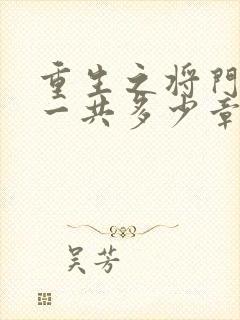 重生之将门
一共多少章
吴芳